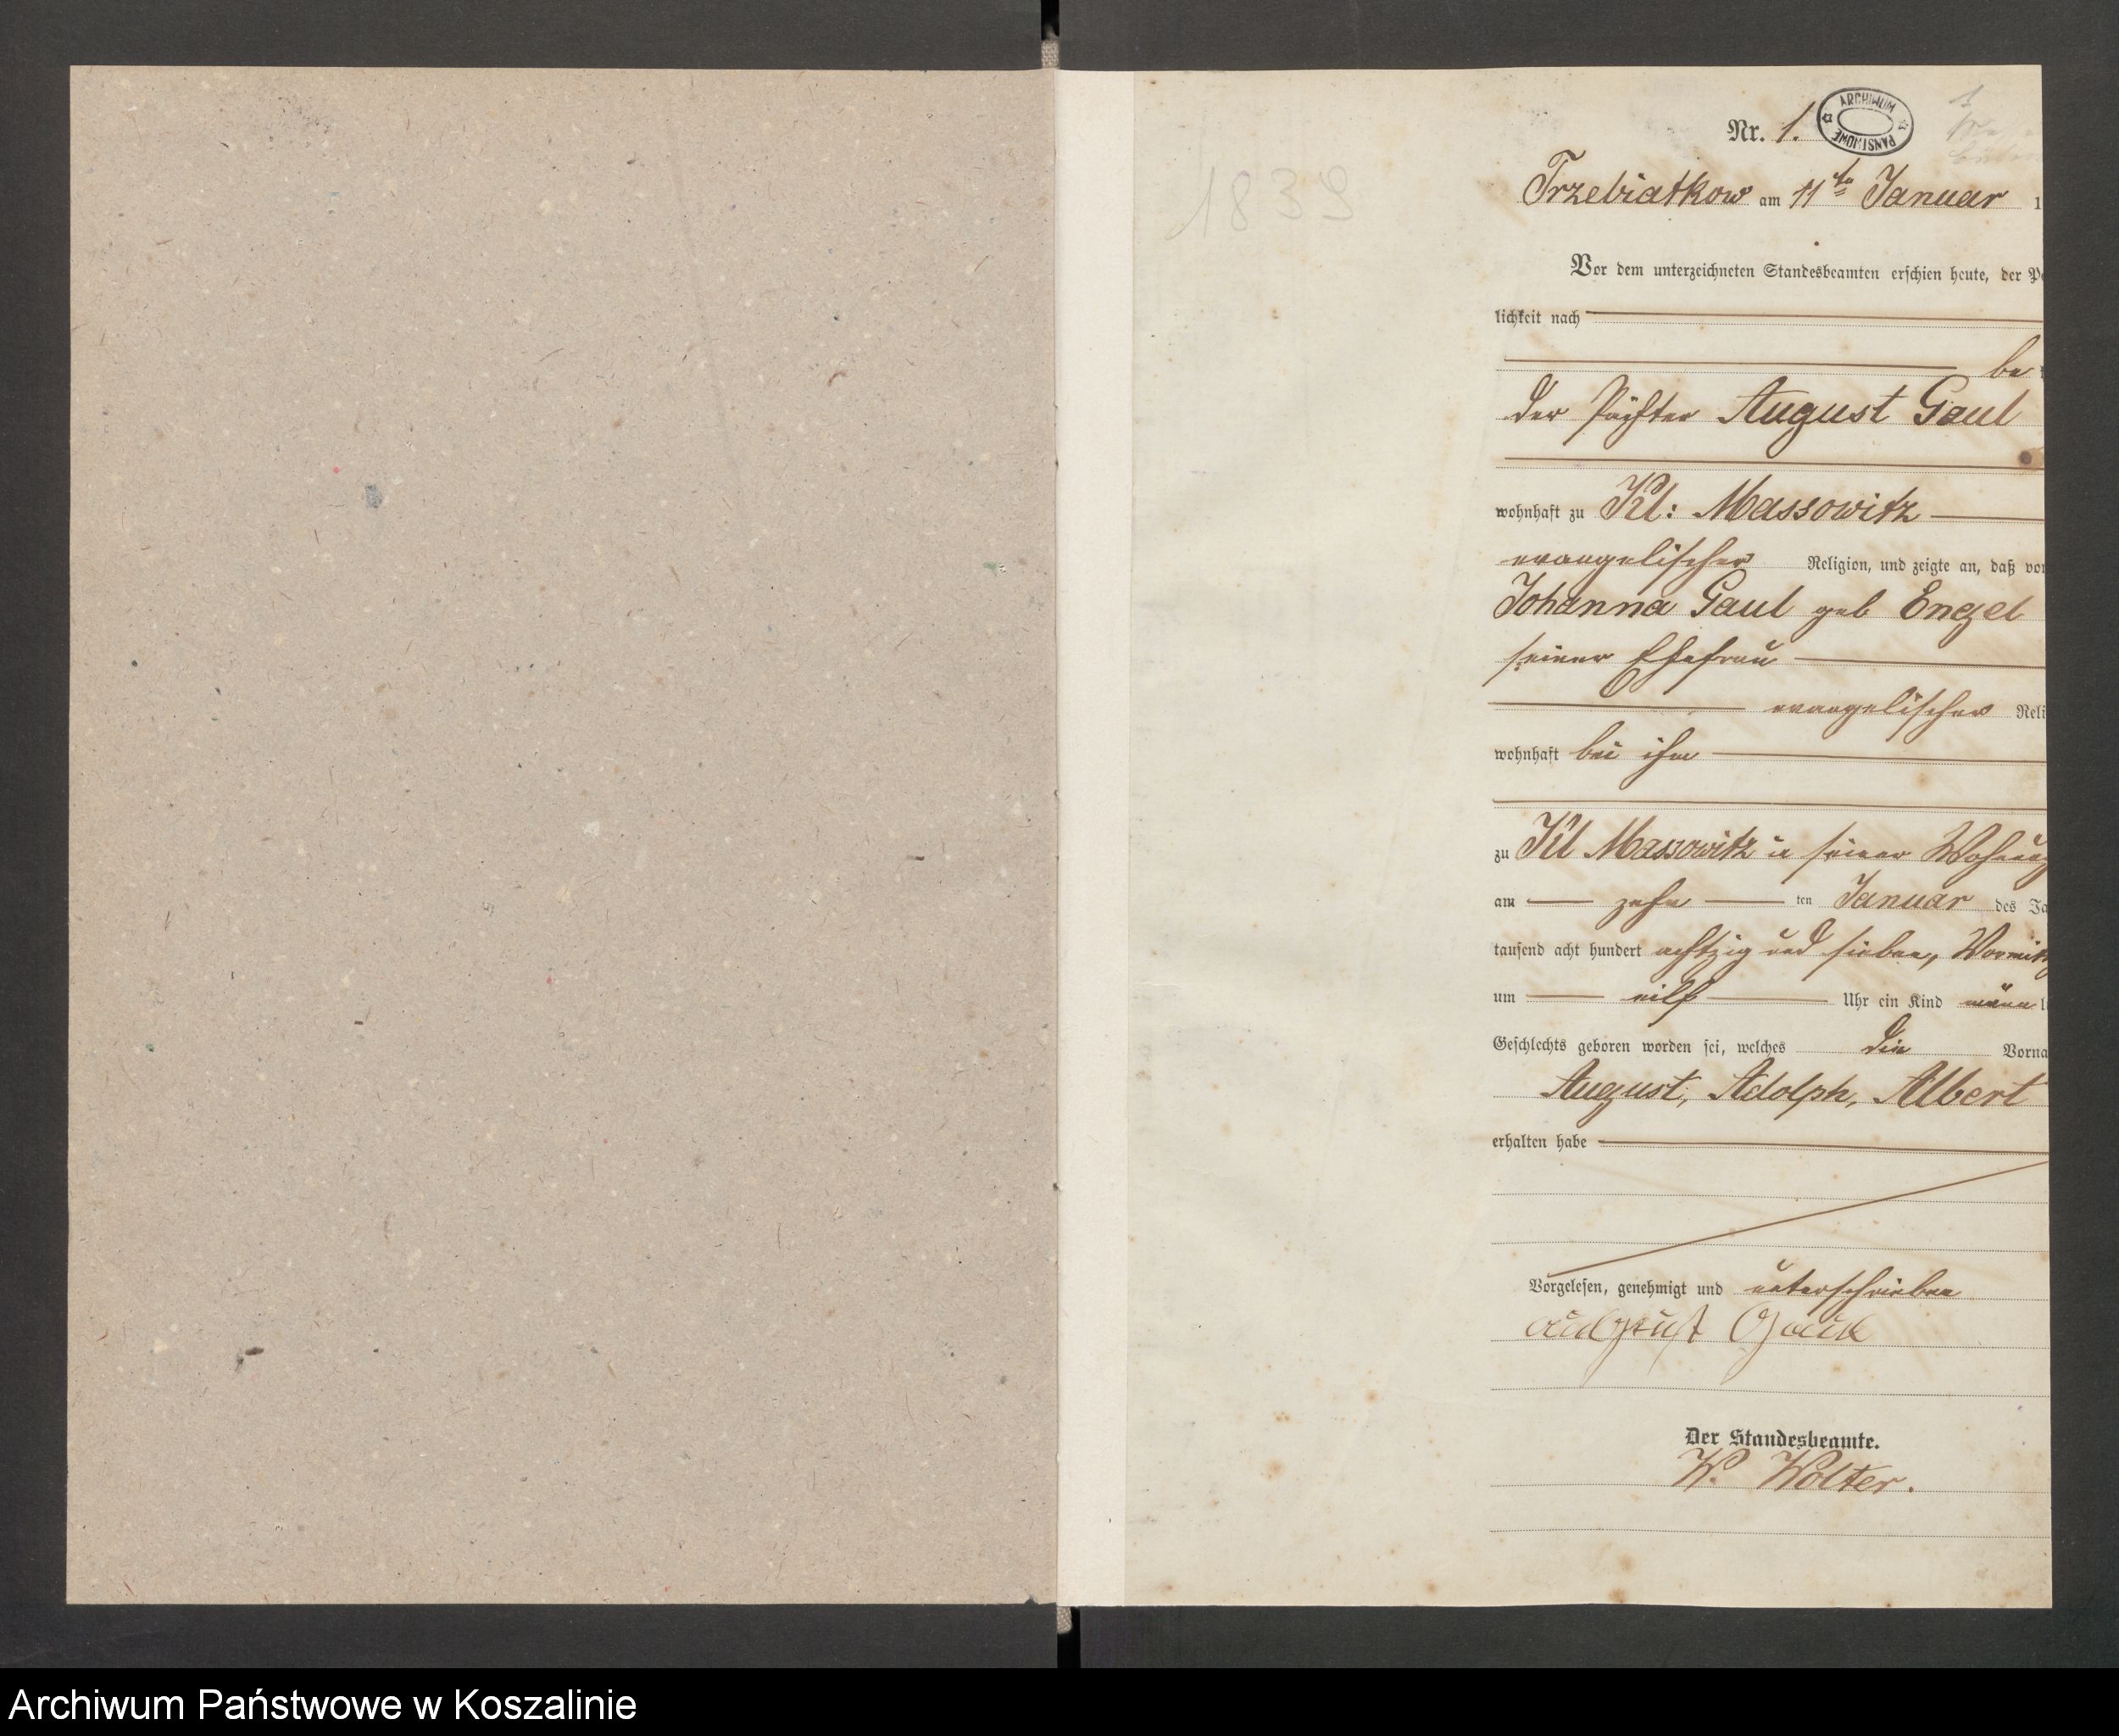 1839
Nr. 1.
ARCHIWUM PAŃSTWOWE
Trzebiatkow am 11ten Januar 1
Vor dem unterzeichneten Standesbeamten erschien heute, der Pe
lichkeit nach
be
der Pächter August Gaul
wohnhaft zu Kl: Massowitz
evangelischer Religion, und zeigte an, daß von
Johanna Gaul geb Engel
seiner Ehefrau
evangelischer Reli
wohnhaft bei ihm
zu Kl Massowitz in seiner Wohnung
am zehn ten Januar des Ja
tausend acht hundert achtzig und sieben, Vormitt
um eilf Uhr ein Kind männ li
Geschlechts geboren worden sei, welches die Vorna
August, Adolph, Albert
erhalten habe
Vorgelesen, genehmigt und unterschrieben
August Gaul
Der Standesbeamte.
W. Wolter.
Archiwum Państwowe w Koszalinie